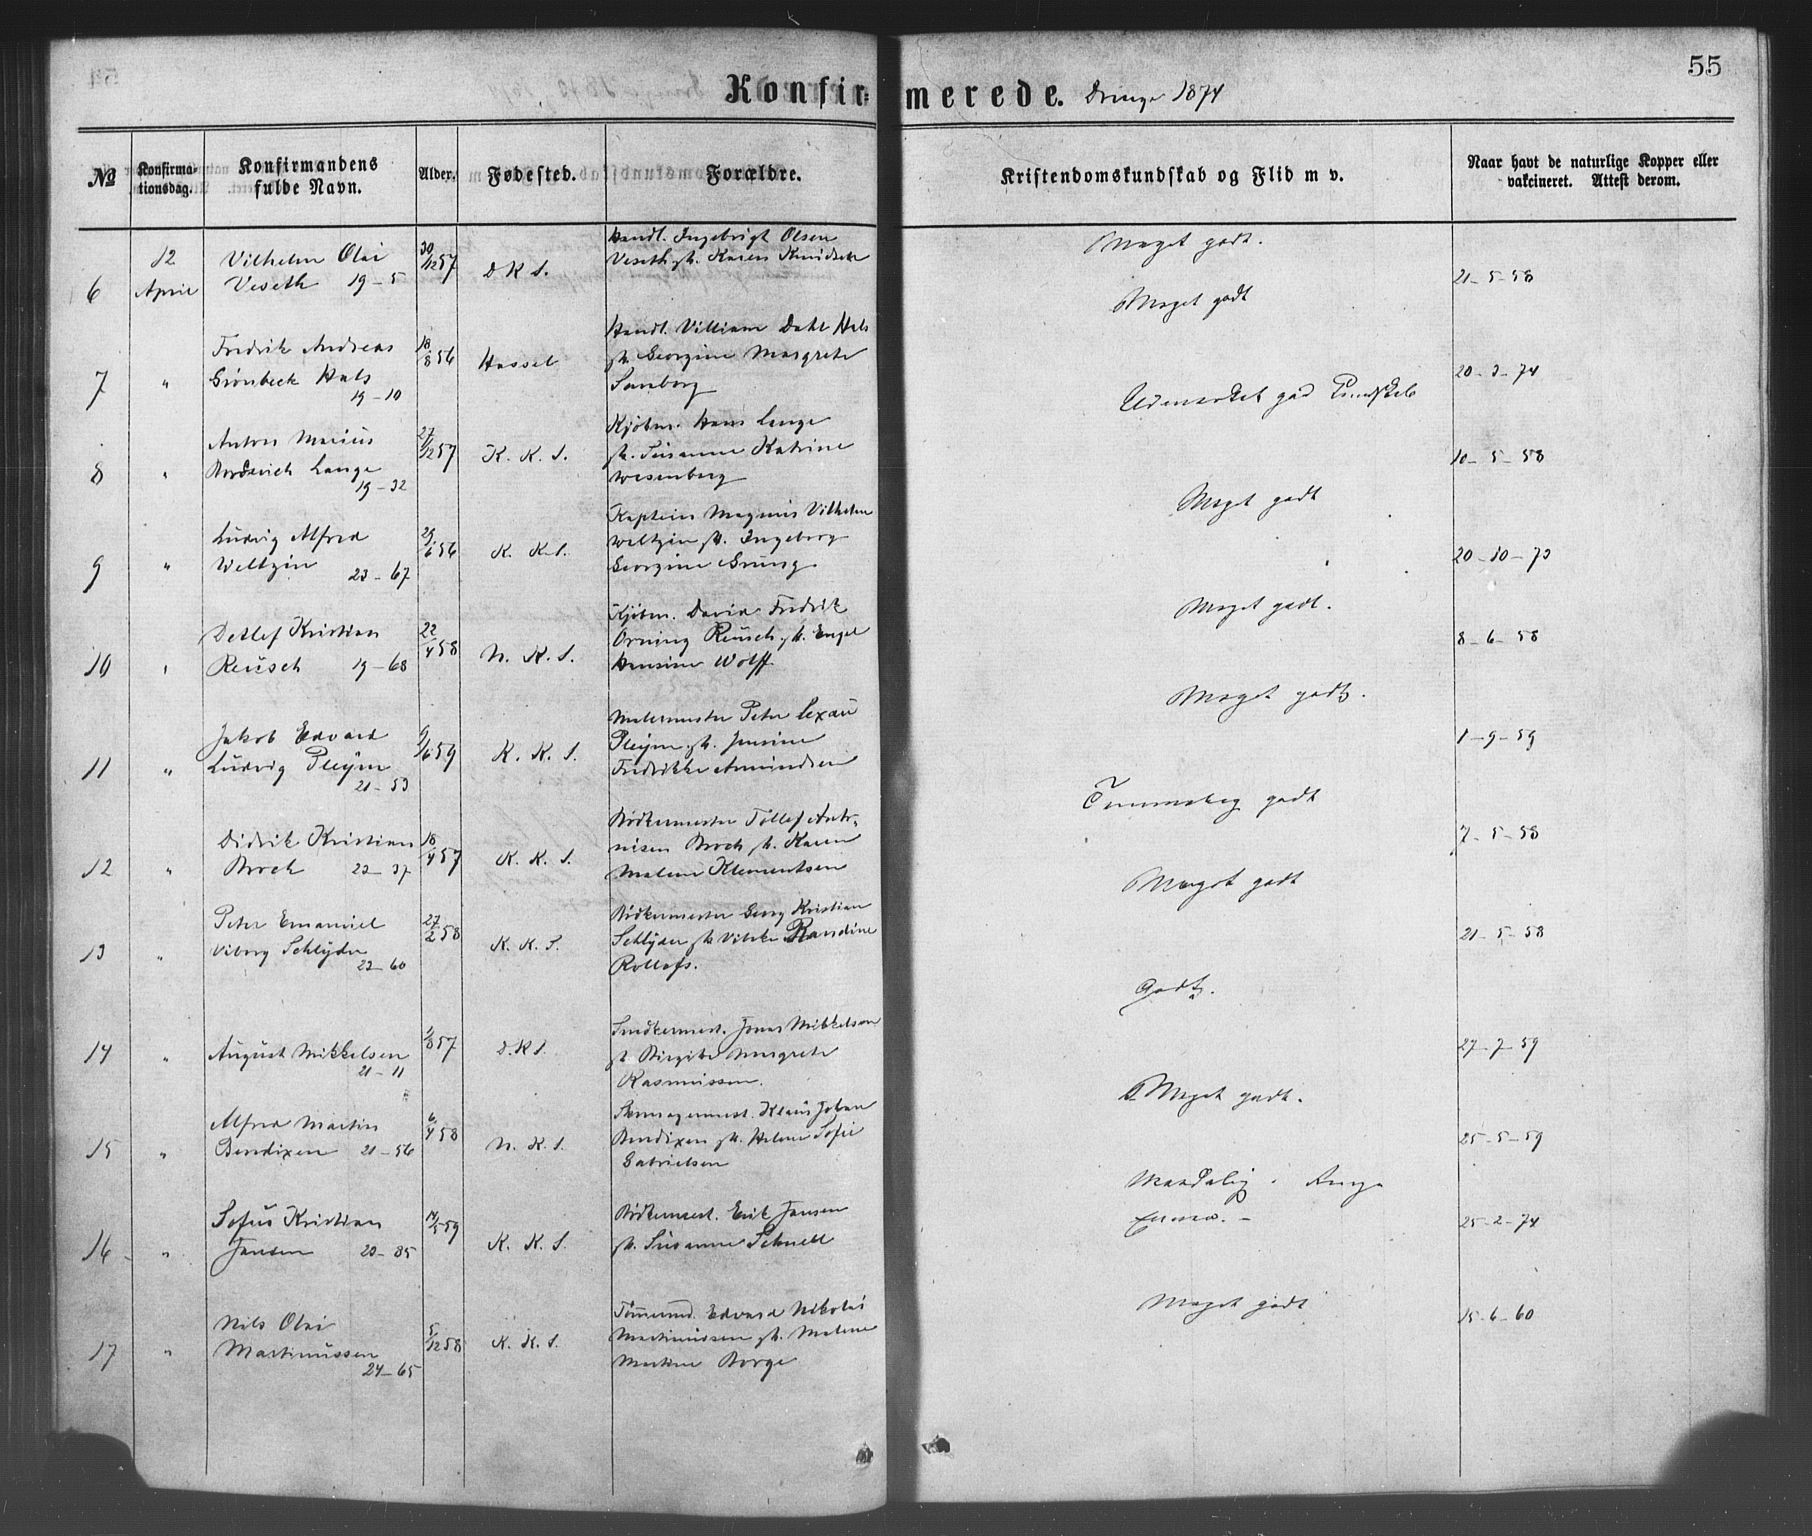 55
Konfirmerede. Drenge 1874
№
Konfirmationsdag.
Konfirmandens fulde Navn.
Alder.
Fødested.
Forældre.
Kristendomskundskab og Flid m v.
Naar havt de naturlige Kopper eller vakcineret. Attest derom.
6 12 April
Vilhelm Olai
Veseth 19-5
30/12 57
D K S.
Handl. Ingebrigt Olsen
Veseth h. Karen Knudsen
Meget godt.
21-5-58
7 "
Fredrik Andreas
Grönbeck Hals
19-10
18/8 56
Hassel
Handl. Villiam Dahl Hals
h. Georgine Margrete
Sanborg
Meget godt
20-3-74
8 "
Anton Marius
Brodtkorb Lange
19-32
27/12 57
K. K. S.
Kjöbm. Hans Lange
h. Susanne Katrine
Wesenberg
Udmerket god Kundskab
10-5-58
9 "
Ludvig Alfred
Weltzin
23-67
29/6 56
K. K. S.
Kaptein Magnus Vilhelm
Weltzin h. Ingeborg
Georgine Grung.
Meget godt
20-10-73
10 "
Detlef Kristian
Reusch 19-68
22/4 58
N. K. S.
Kjöbm. David Fredrik
Orning Reusch h. Engel
Hansine Wolff
Meget godt.
8-6-58
11 "
Jakob Edvard
Ludvig Pleym
21-53
9/6 59
K. K. S.
Malermester Peter Lexau
Pleym h. Jensine
Fredrikke Amundsen
Meget godt.
1-9-59
12 "
Didrik Kristian
Broch 22-37
18/4 57
K. K. S.
Bödkermester Tollef Anto-
nisen Broch h. Karen
Malene Klementsen
Temmelig godt
7-5-58
13 "
Peter Emanuel
Viborg Schlyder
22-60
27/2 58
K. K. S.
Bödkermester Georg Kristian
Schlyder h. Vibeke Randine
Rollefs.
Meget godt
21-5-58
14 "
August Mikkelsen
21-11
2/8 57
D. K S.
Snedkermest. Jonas Mikkelsen
h. Birgite Margrete
Rasmussen.
Godt.
27-7-59
15 "
Alfred Martin
Bendixen 21-56
6/4 58
N. K. S.
Klaus Johan
Bendixen h. Helene Sofie
Gabrielsen
Meget godt.
25-5-59
16 "
Sofus Kristian
Jansen 20-85
14/5 59
K. K. S.
Bödkermest. Erik Jansen
h. Susanne Schnell
Maadelig
25-2-74
17 "
Nils Olai
Martinussen
24-65
5/12 58
K. K. S.
Tömmermd. Edvard Nikolai
Martinussen h. Malene
Martine Borge
Meget godt
15-6-60